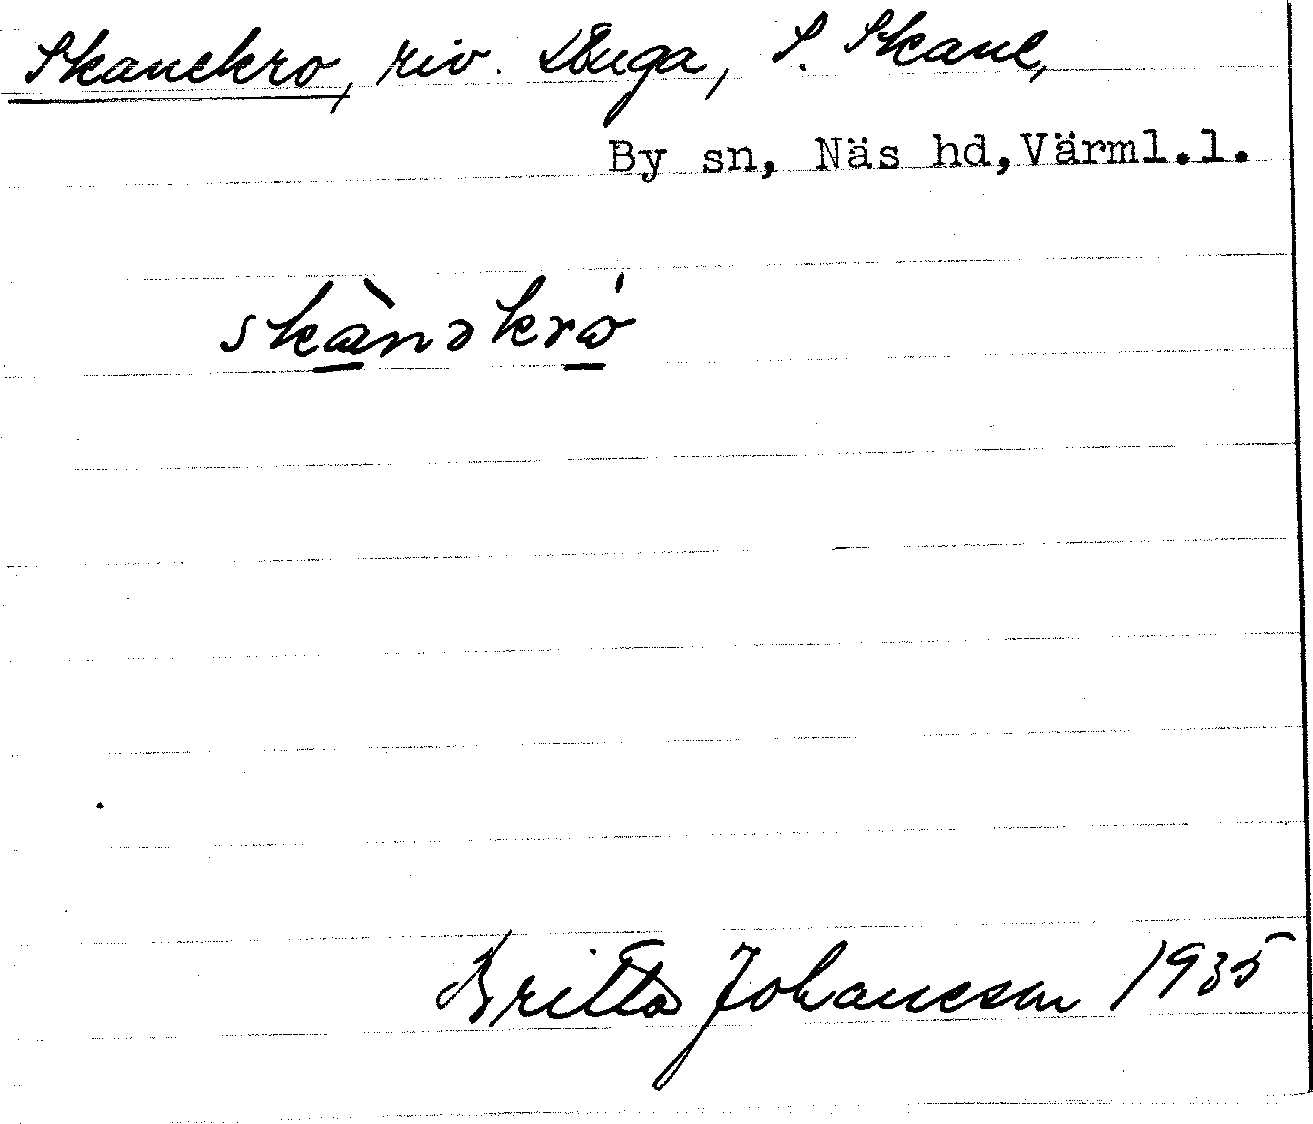 Skanekro, riv. Stuga, S. Skane,
By sn, Näs hd, Värml.l.
skànəkró
Britta Johansson 1935